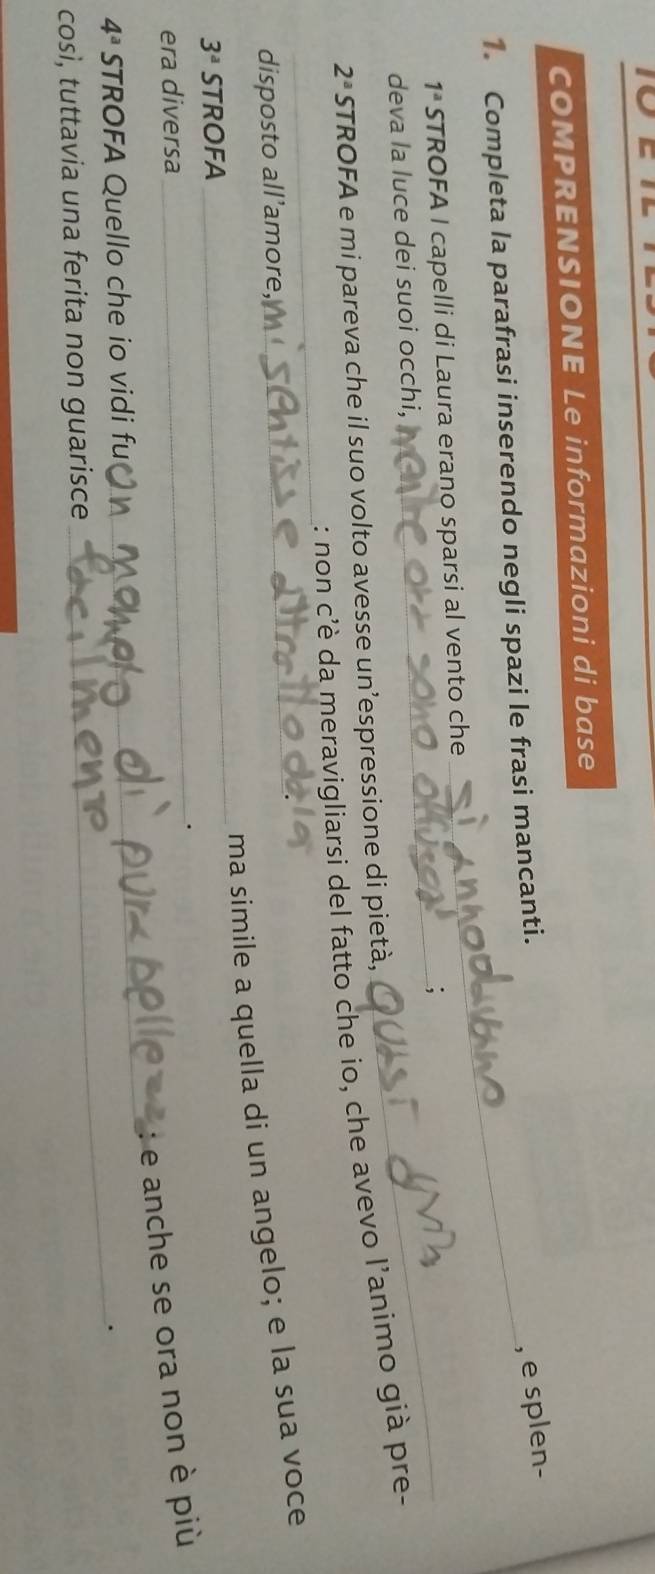 COMPRENSIONE Le informazioni di base
1. Completa la parafrasi inserendo negli spazi le frasi mancanti.
1ª STROFA I capelli di Laura erano sparsi al vento che si annodavano, e splen-
deva la luce dei suoi occhi, mentre ora sono offuscati;
2ª STROFA e mi pareva che il suo volto avesse un'espressione di pietà, quasi divin
: non c'è da meravigliarsi del fatto che io, che avevo l'animo già pre-
disposto all'amore, mi sentisse attratto da la.
3ª STROFA ma simile a quella di un angelo; e la sua voce
era diversa.
4ª STROFA Quello che io vidi fu un momento di pura bellezza; e anche se ora non è più
così, tuttavia una ferita non guarisce facilmente.